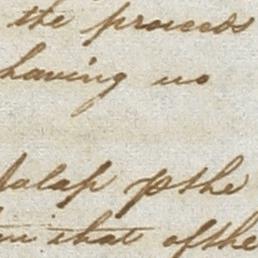 the proceeds
having no
Jalap p the
that of the